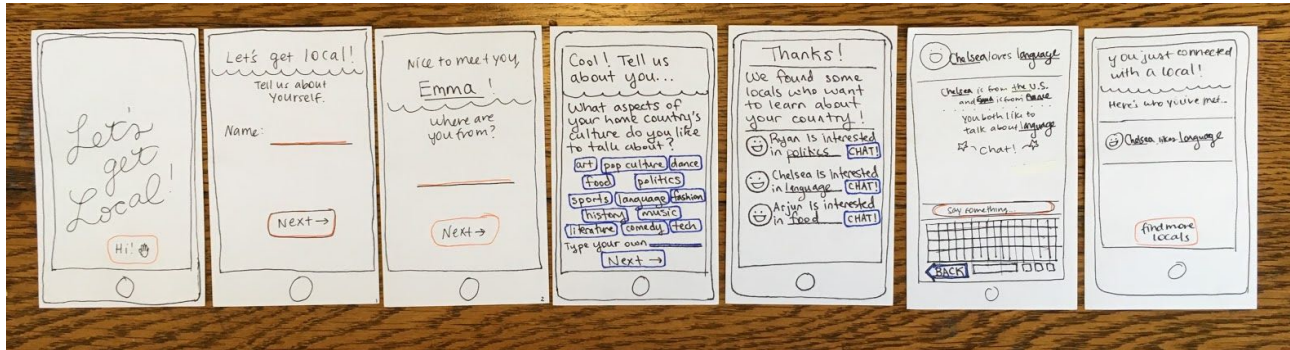 Let's
get
Local!
Hi!
Let's get local!
Tell us about
yourself.
Name:
Next →
1
Nice to meet you,
Emma!
Where are
you from?
Next →
2
Cool! Tell us
about you...
What aspects of
your home country's
culture do you like
to talk about?
art pop culture dance
food politics
sports language fashion
history music
literature comedy tech
Type your own
Next →
Thanks!
We found some
locals who want
to learn about
your country!
Ryan is interested
in politics CHAT!
Chelsea is interested
in language CHAT!
Arjun is interested
in food CHAT!
Chelsea loves language
Chelsea is from the U.S.
and is from
you both like to
talk about language
Chat!
Say something...
BACK
you just connected
with a local!
Here's who you've met...
Chelsea likes language
find more
locals